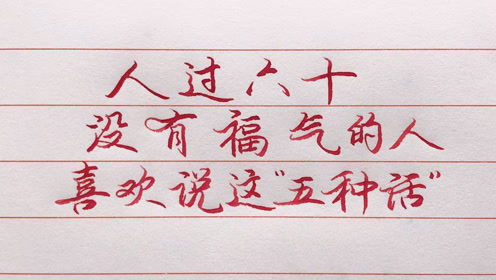 人过六十
没有福气的人
喜欢说这"五种话"